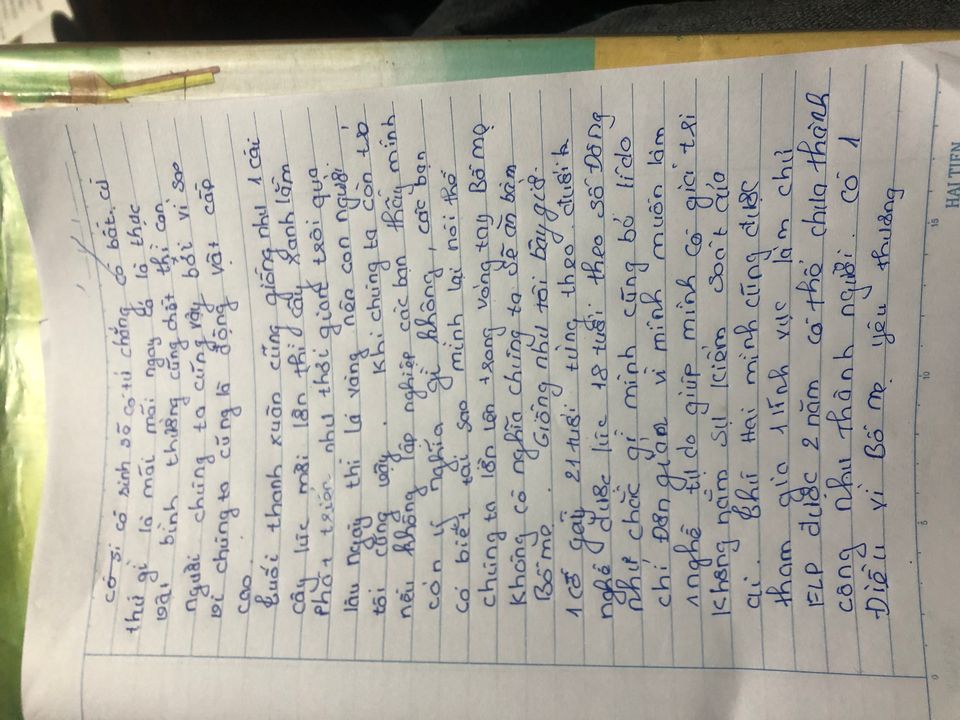 có si có sinh sẽ có tử chẳng có bất cứ
thứ gì là mãi mãi ngay cả là thực
vật bình thường cũng chốt thì con
người chúng ta cũng vậy bởi vì sao
vì chúng ta cũng là động vật cấp
cao.
tuổi thanh xuân cũng giống như 1 cái
cây lúc mới lớn thì cây xanh lắm
phát triển như thời giant trôi qua
lâu ngày thì lá vàng nên con người
tôi cũng vậy. Khi chúng ta còn trẻ
nếu không lập nghiệp các bạn thấy mình
còn ý nghĩa gì không, các bạn
có biết tại sao mình lại nói thế
chúng ta lớn lên trong vòng tay Bố mẹ
không có nghĩa chúng ta sẽ ăn bám
Bố mẹ. Giống như tôi bây giờ.
1 cô gái 21 tuổi từng theo đuổi
nghề được lúc 18 tuổi theo số Đông
như chả gì mình cũng bỏ lí do
chỉ Đơn giảm vì mình muốn làm
1 nghề tự do giúp mình có giá trị
không nằm sự kiểm soát
ai. thứ Hai mình cũng được
tham gia 1 lĩnh vực làm chủ
FLP được 2 năm có thể chưa thành
công như thành người. có 1
Điều vì Bố mẹ yêu thương
HẢI TIẾN
0
5
10
15